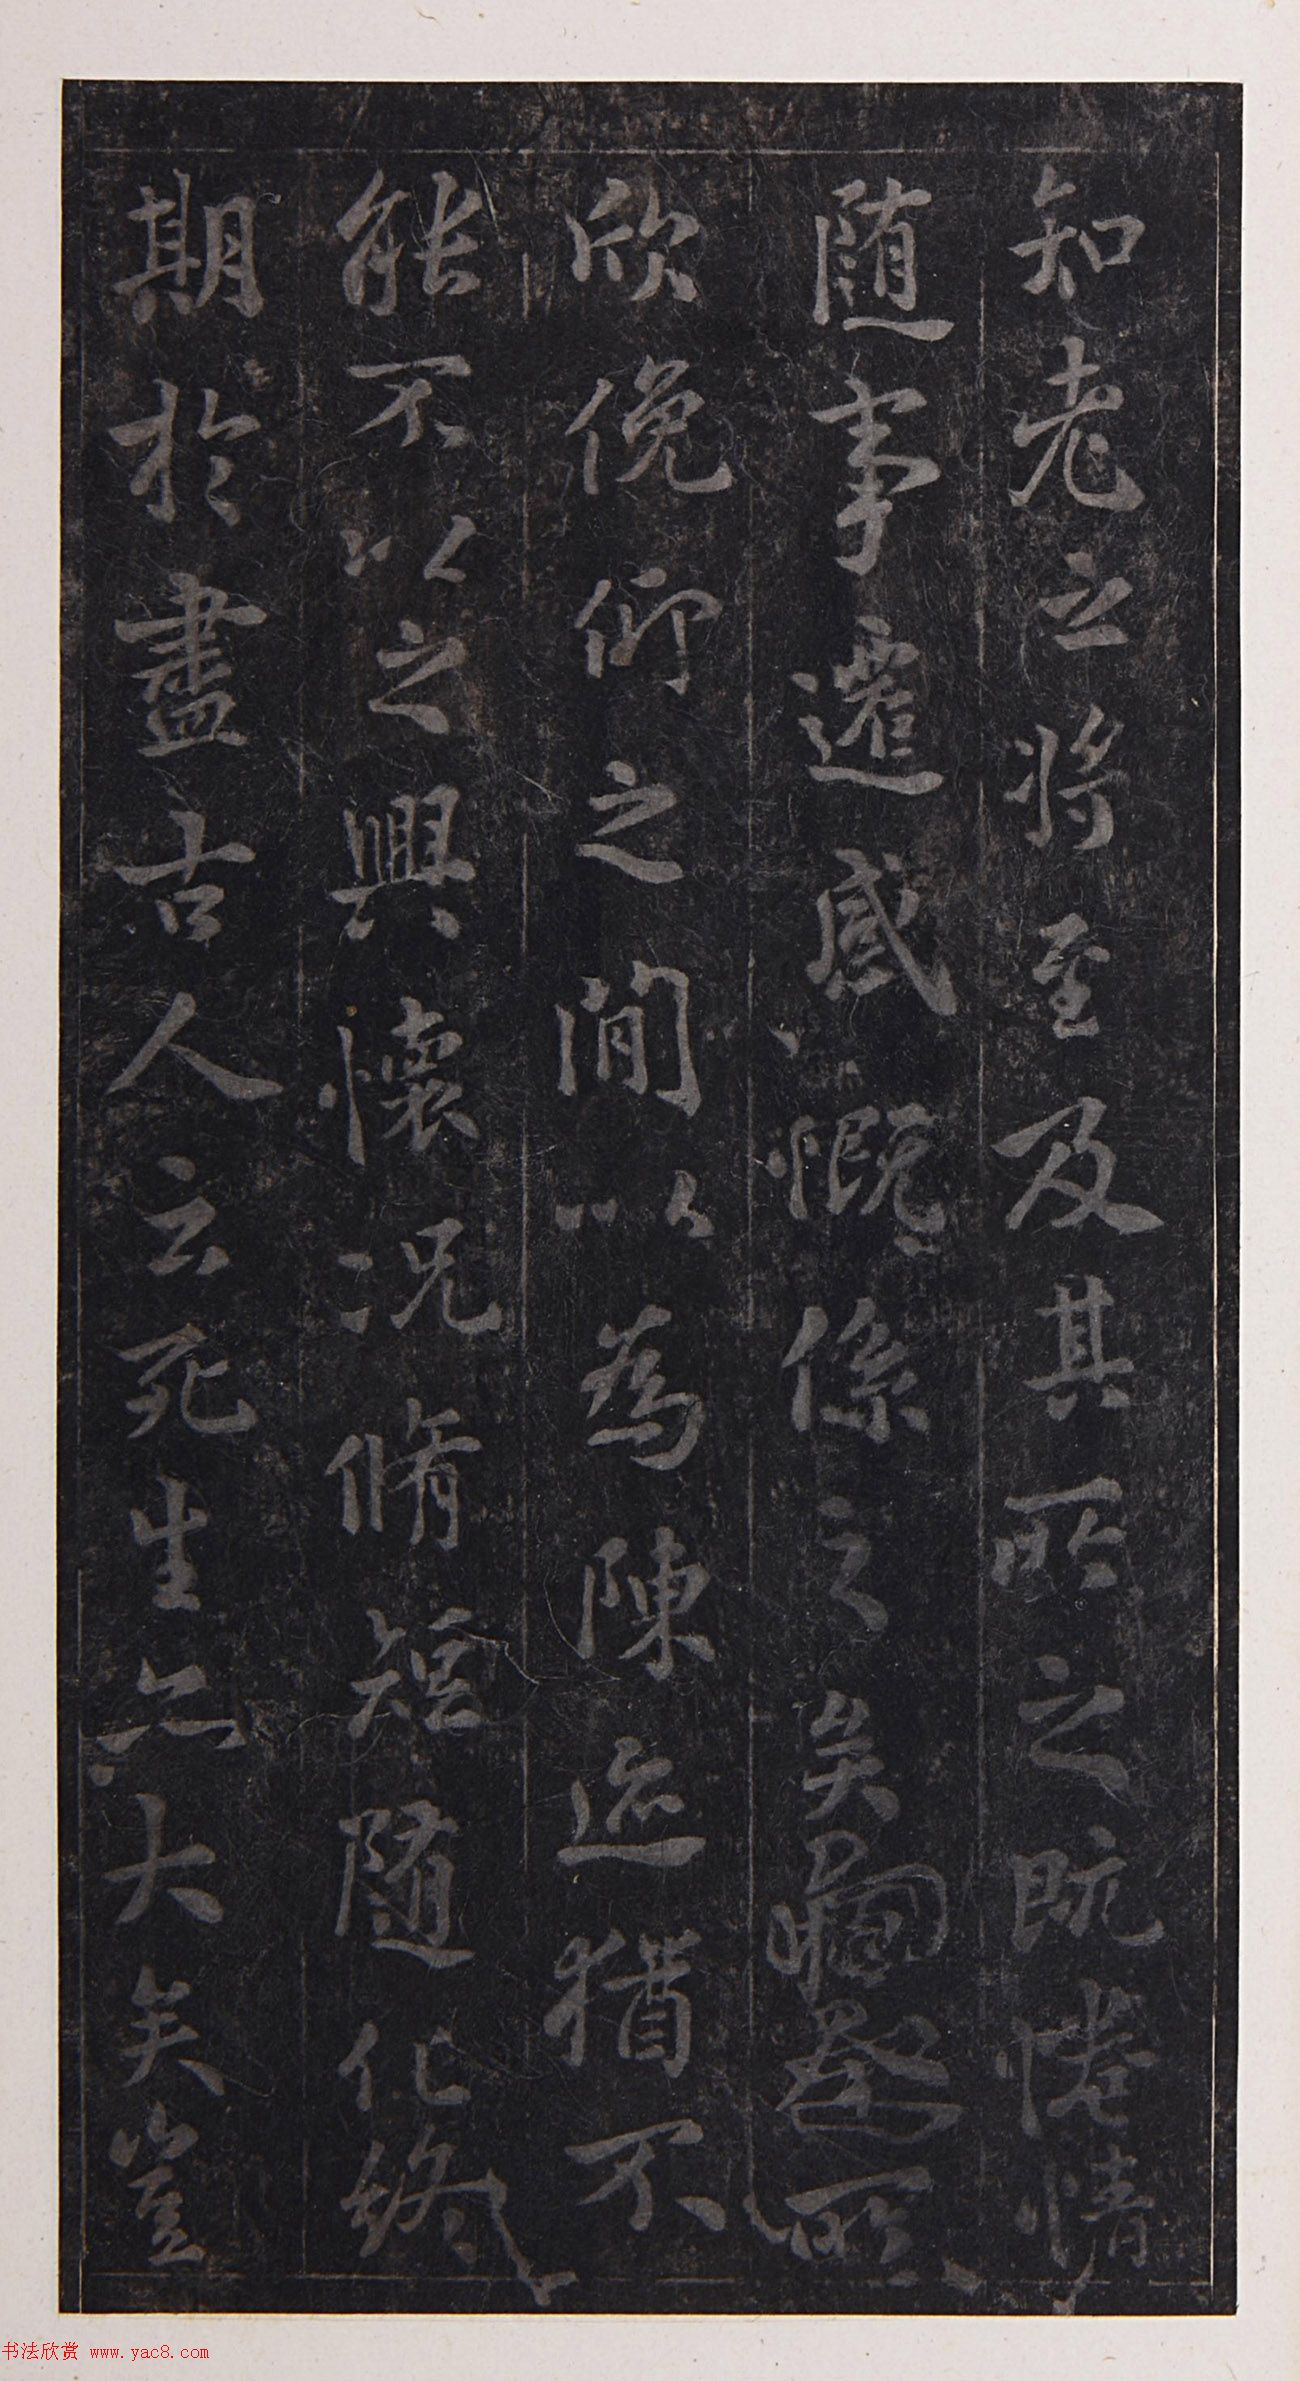 知老之將至及其所之既惓情
随事遷感慨係之矣嚮之所
欣俛仰之閒以為陳迹猶不
能不以之興懷況脩短随化終
期於盡古人云死生亦大矣豈
书法欣赏 www.yac8.com